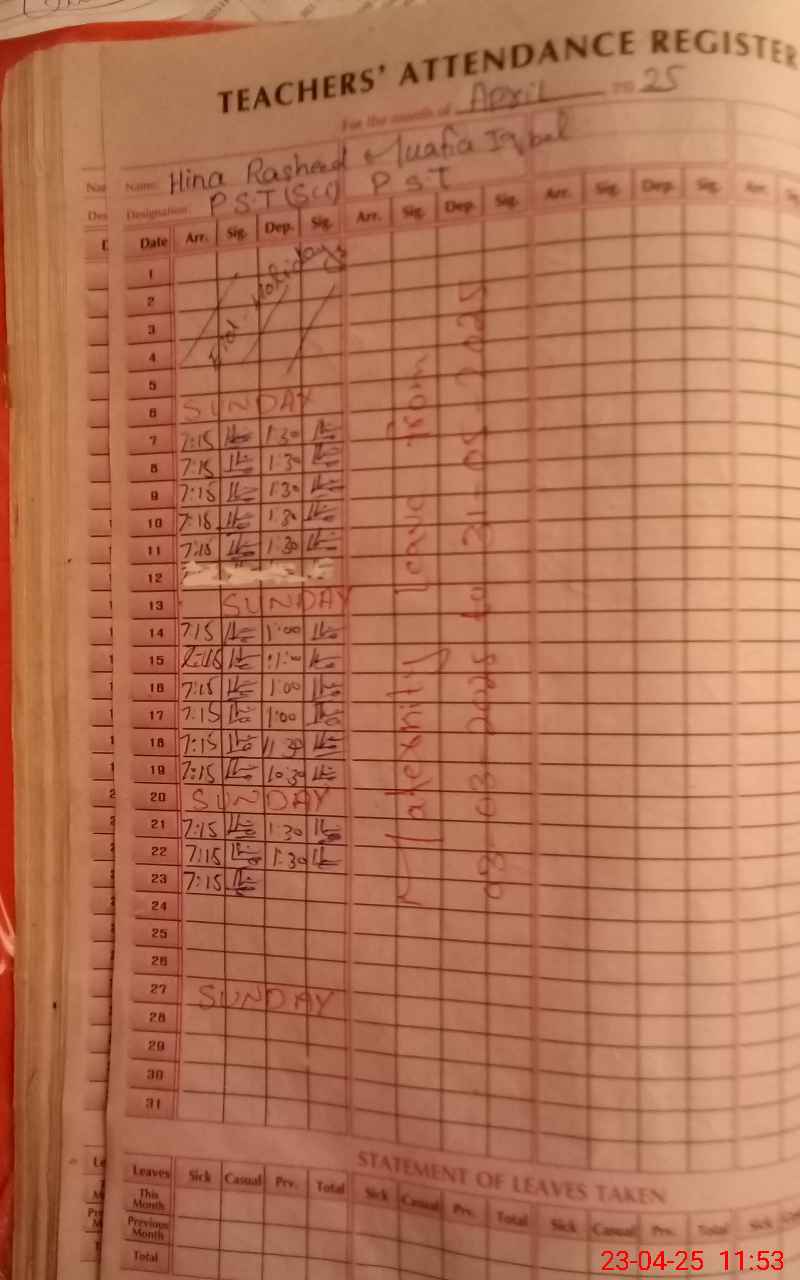 TEACHERS' ATTENDANCE REGISTER
For the month of April 20 25
Name: Hina Rasheed Muafia Iqbal
Designation: P.S.T (Sci) P S T
Date Arr. Sig. Dep. Sig. Arr. Sig. Dep. Sig. Arr. Sig. Dep. Sig. Arr.
1
2
3
4
Holidays
5
6 SUNDAY
7 7:15 1:30
8 7:15 1:30
9 7:15 1:30
10 7:15 1:30
11 7:15 1:30
12
13 SUNDAY
14 7:15 1:00
15 7:15 1:00
16 7:15 1:00
17 7:15 1:00
18 7:15 11:30
19 7:15 10:30
20 SUNDAY
21 7:15 1:30
22 7:15 1:30
23 7:15
24
25
26
27 SUNDAY
28
29
30
31
Leave from
to 31-05-2025
STATEMENT OF LEAVES TAKEN
Leaves Sick Casual Prv. Total Sick Casual Prv. Total Sick Casual Prv. Total Sick
This Month
Previous Month
Total
23-04-25 11:53